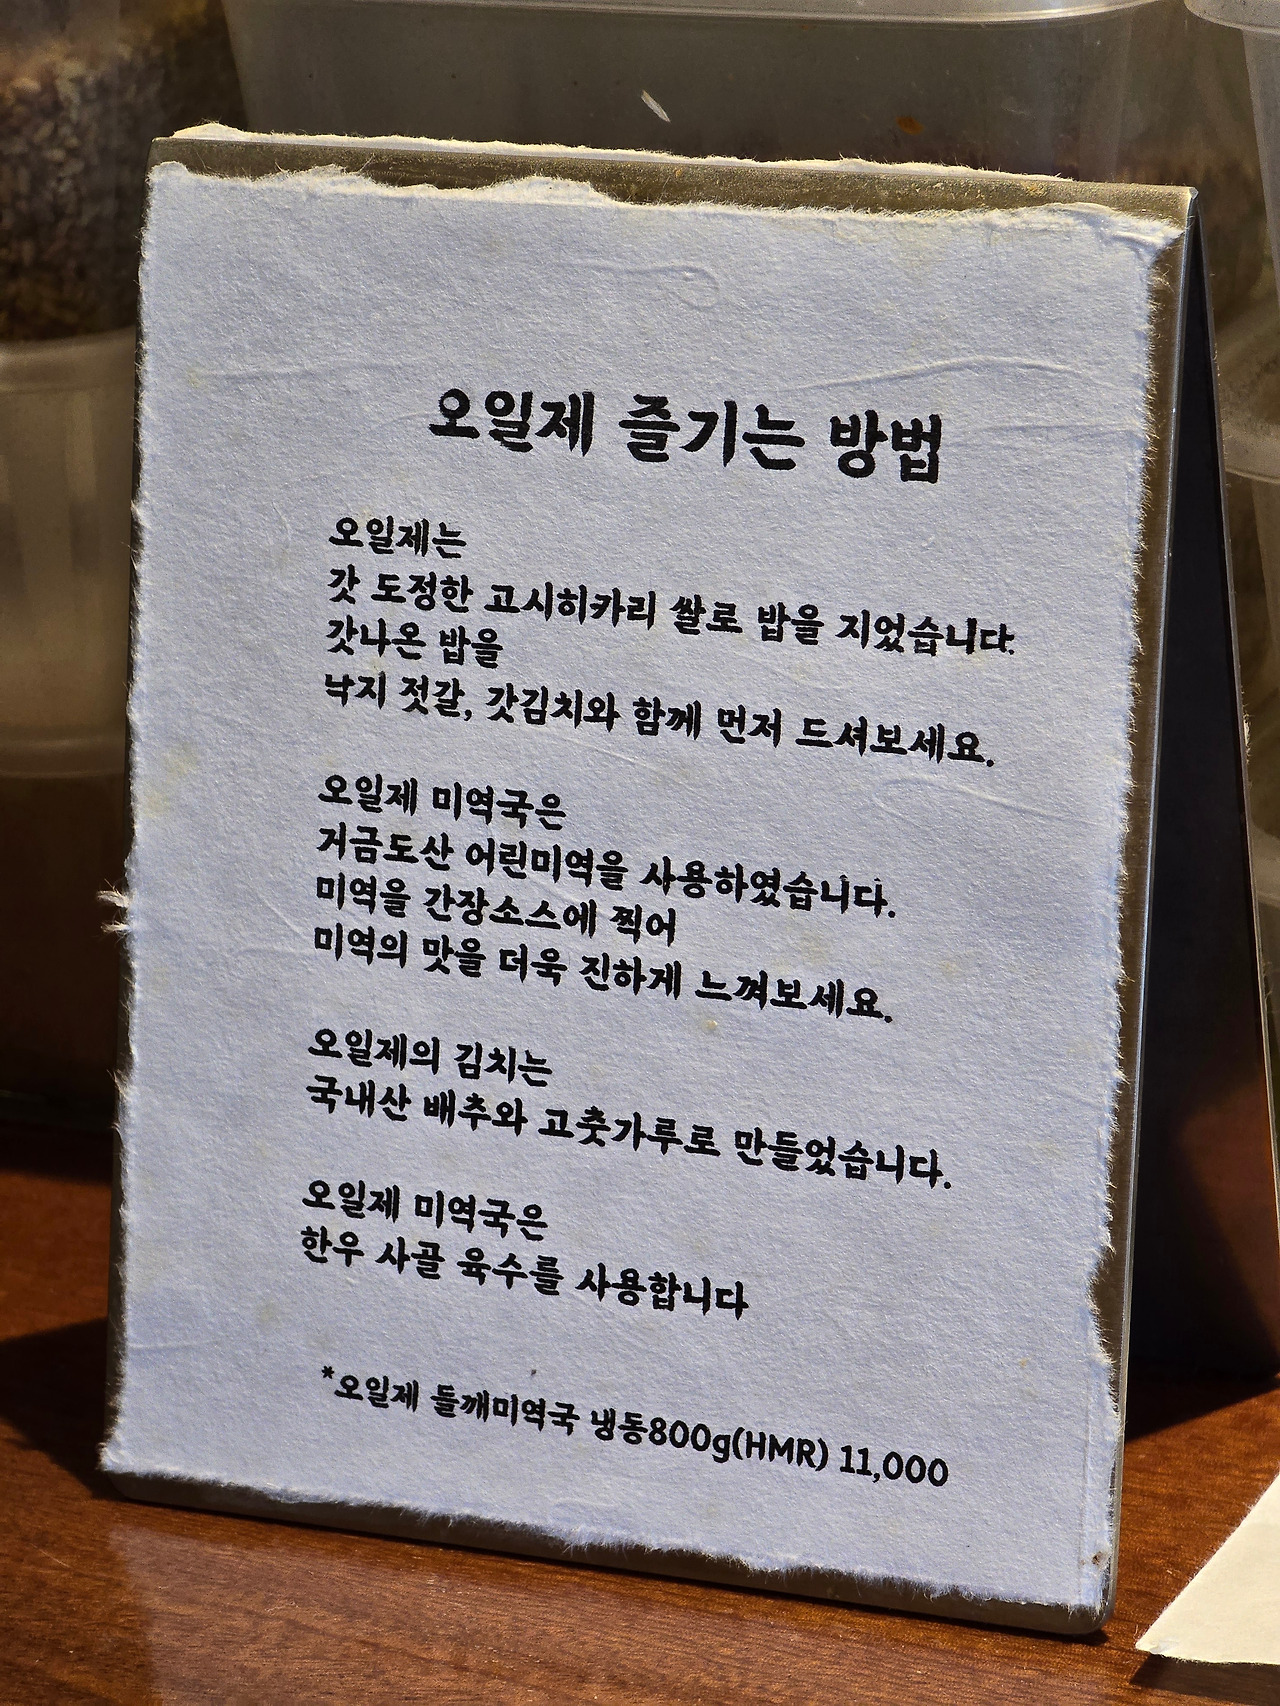 오일제 즐기는 방법
오일제는
갓 도정한 고시히카리 쌀로 밥을 지었습니다.
갓나온 밥을
낙지 젓갈, 갓김치와 함께 먼저 드셔보세요.
오일제 미역국은
거금도산 어린미역을 사용하였습니다.
미역을 간장소스에 찍어
미역의 맛을 더욱 진하게 느껴보세요.
오일제의 김치는
국내산 배추와 고춧가루로 만들었습니다.
오일제 미역국은
한우 사골 육수를 사용합니다
*오일제 들깨미역국 냉동800g(HMR) 11,000